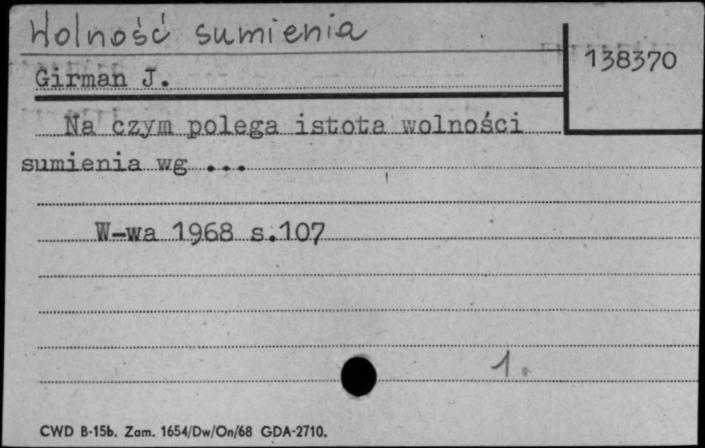 Wolność sumienia
138370
Girman J.
Na czym polega istota wolności
sumienia wg ...
W-wa 1968 s.107
1.
CWD B-15b. Zam. 1654/Dw/On/68 GDA-2710.